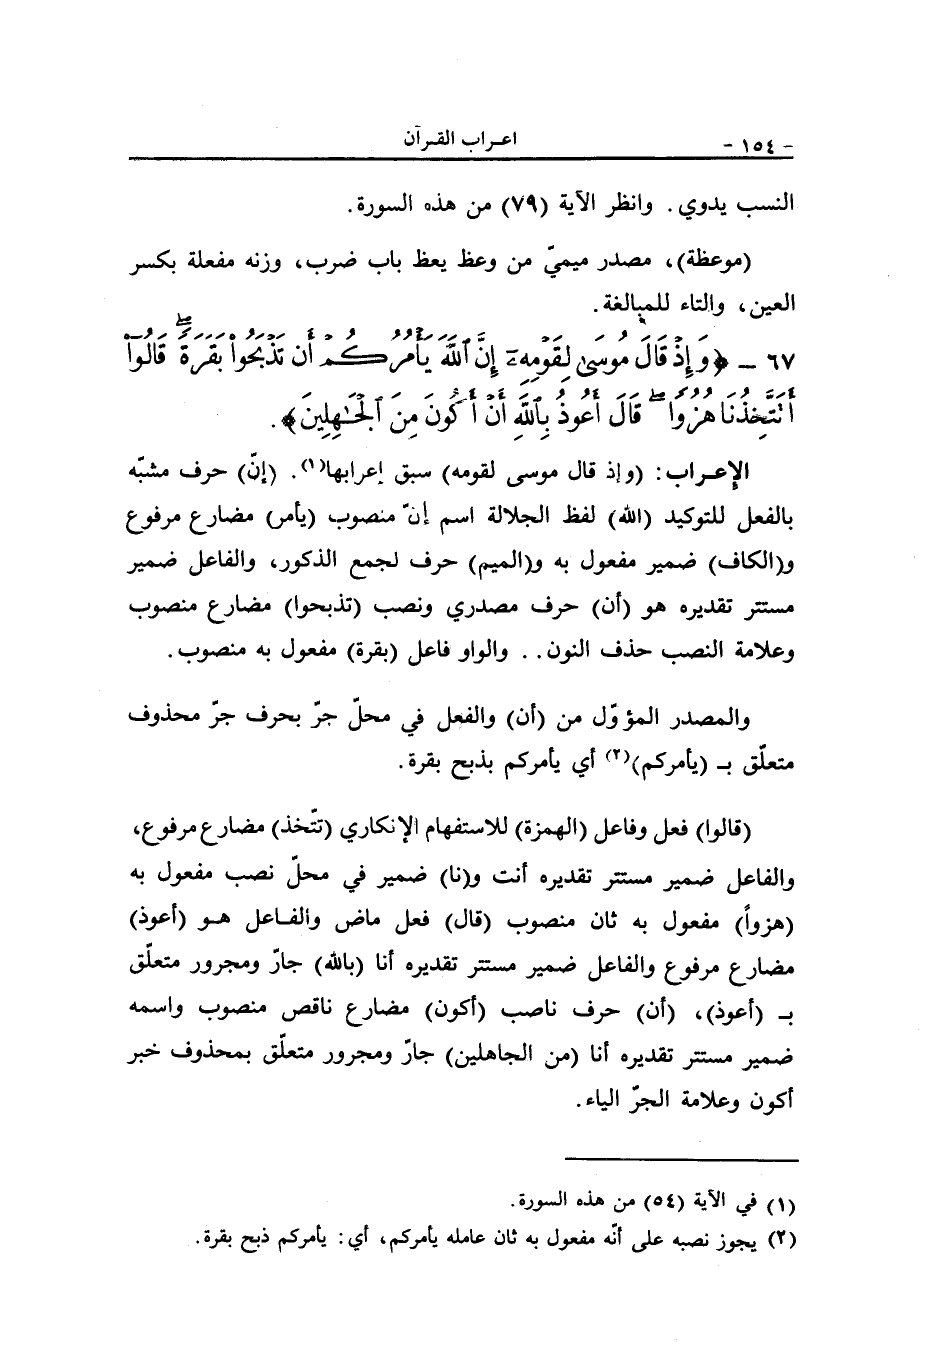 - ١٥٤ - اعـراب القـرآن
النسب يدوي. وانظر الآية (٧٩) من هذه السورة.
(موعظة)، مصدر ميميّ من وعظ يعظ باب ضرب، وزنه مفعلة بكسر
العين، والتاء للمبالغة.
٦٧ ـ ﴿وَإِذْ قَالَ مُوسَىٰ لِقَوْمِهِۦٓ إِنَّ ٱللَّهَ يَأْمُرُكُمْ أَن تَذْبَحُوا۟ بَقَرَةً ۖ قَالُوٓا۟
أَتَتَّخِذُنَا هُزُوًا ۖ قَالَ أَعُوذُ بِٱللَّهِ أَنْ أَكُونَ مِنَ ٱلْجَـٰهِلِينَ﴾.
الإعـراب: (وإذ قال موسى لقومه) سبق إعرابها(١). (إنّ) حرف مشبّه
بالفعل للتوكيد (الله) لفظ الجلالة اسم إنّ منصوب (يأمر) مضارع مرفوع
و(الكاف) ضمير مفعول به و(الميم) حرف لجمع الذكور، والفاعل ضمير
مستتر تقديره هو (أن) حرف مصدري ونصب (تذبحوا) مضارع منصوب
وعلامة النصب حذف النون.. والواو فاعل (بقرة) مفعول به منصوب.
والمصدر المؤوّل من (أن) والفعل في محلّ جرّ بحرف جرّ محذوف
متعلّق بـ (يأمركم)(٢) أي يأمركم بذبح بقرة.
(قالوا) فعل وفاعل (الهمزة) للاستفهام الإنكاري (تتّخذ) مضارع مرفوع،
والفاعل ضمير مستتر تقديره أنت و(نا) ضمير في محلّ نصب مفعول به
(هزواً) مفعول به ثان منصوب (قال) فعل ماض والفـاعل هـو (أعوذ)
مضارع مرفوع والفاعل ضمير مستتر تقديره أنا (بالله) جارّ ومجرور متعلّق
بـ (أعوذ)، (أن) حرف ناصب (أكون) مضارع ناقص منصوب واسمه
ضمير مستتر تقديره أنا (من الجاهلين) جارّ ومجرور متعلّق بمحذوف خبر
أكون وعلامة الجرّ الياء.
(١) في الآية (٥٤) من هذه السورة.
(٢) يجوز نصبه على أنّه مفعول به ثان عامله يأمركم، أي: يأمركم ذبح بقرة.